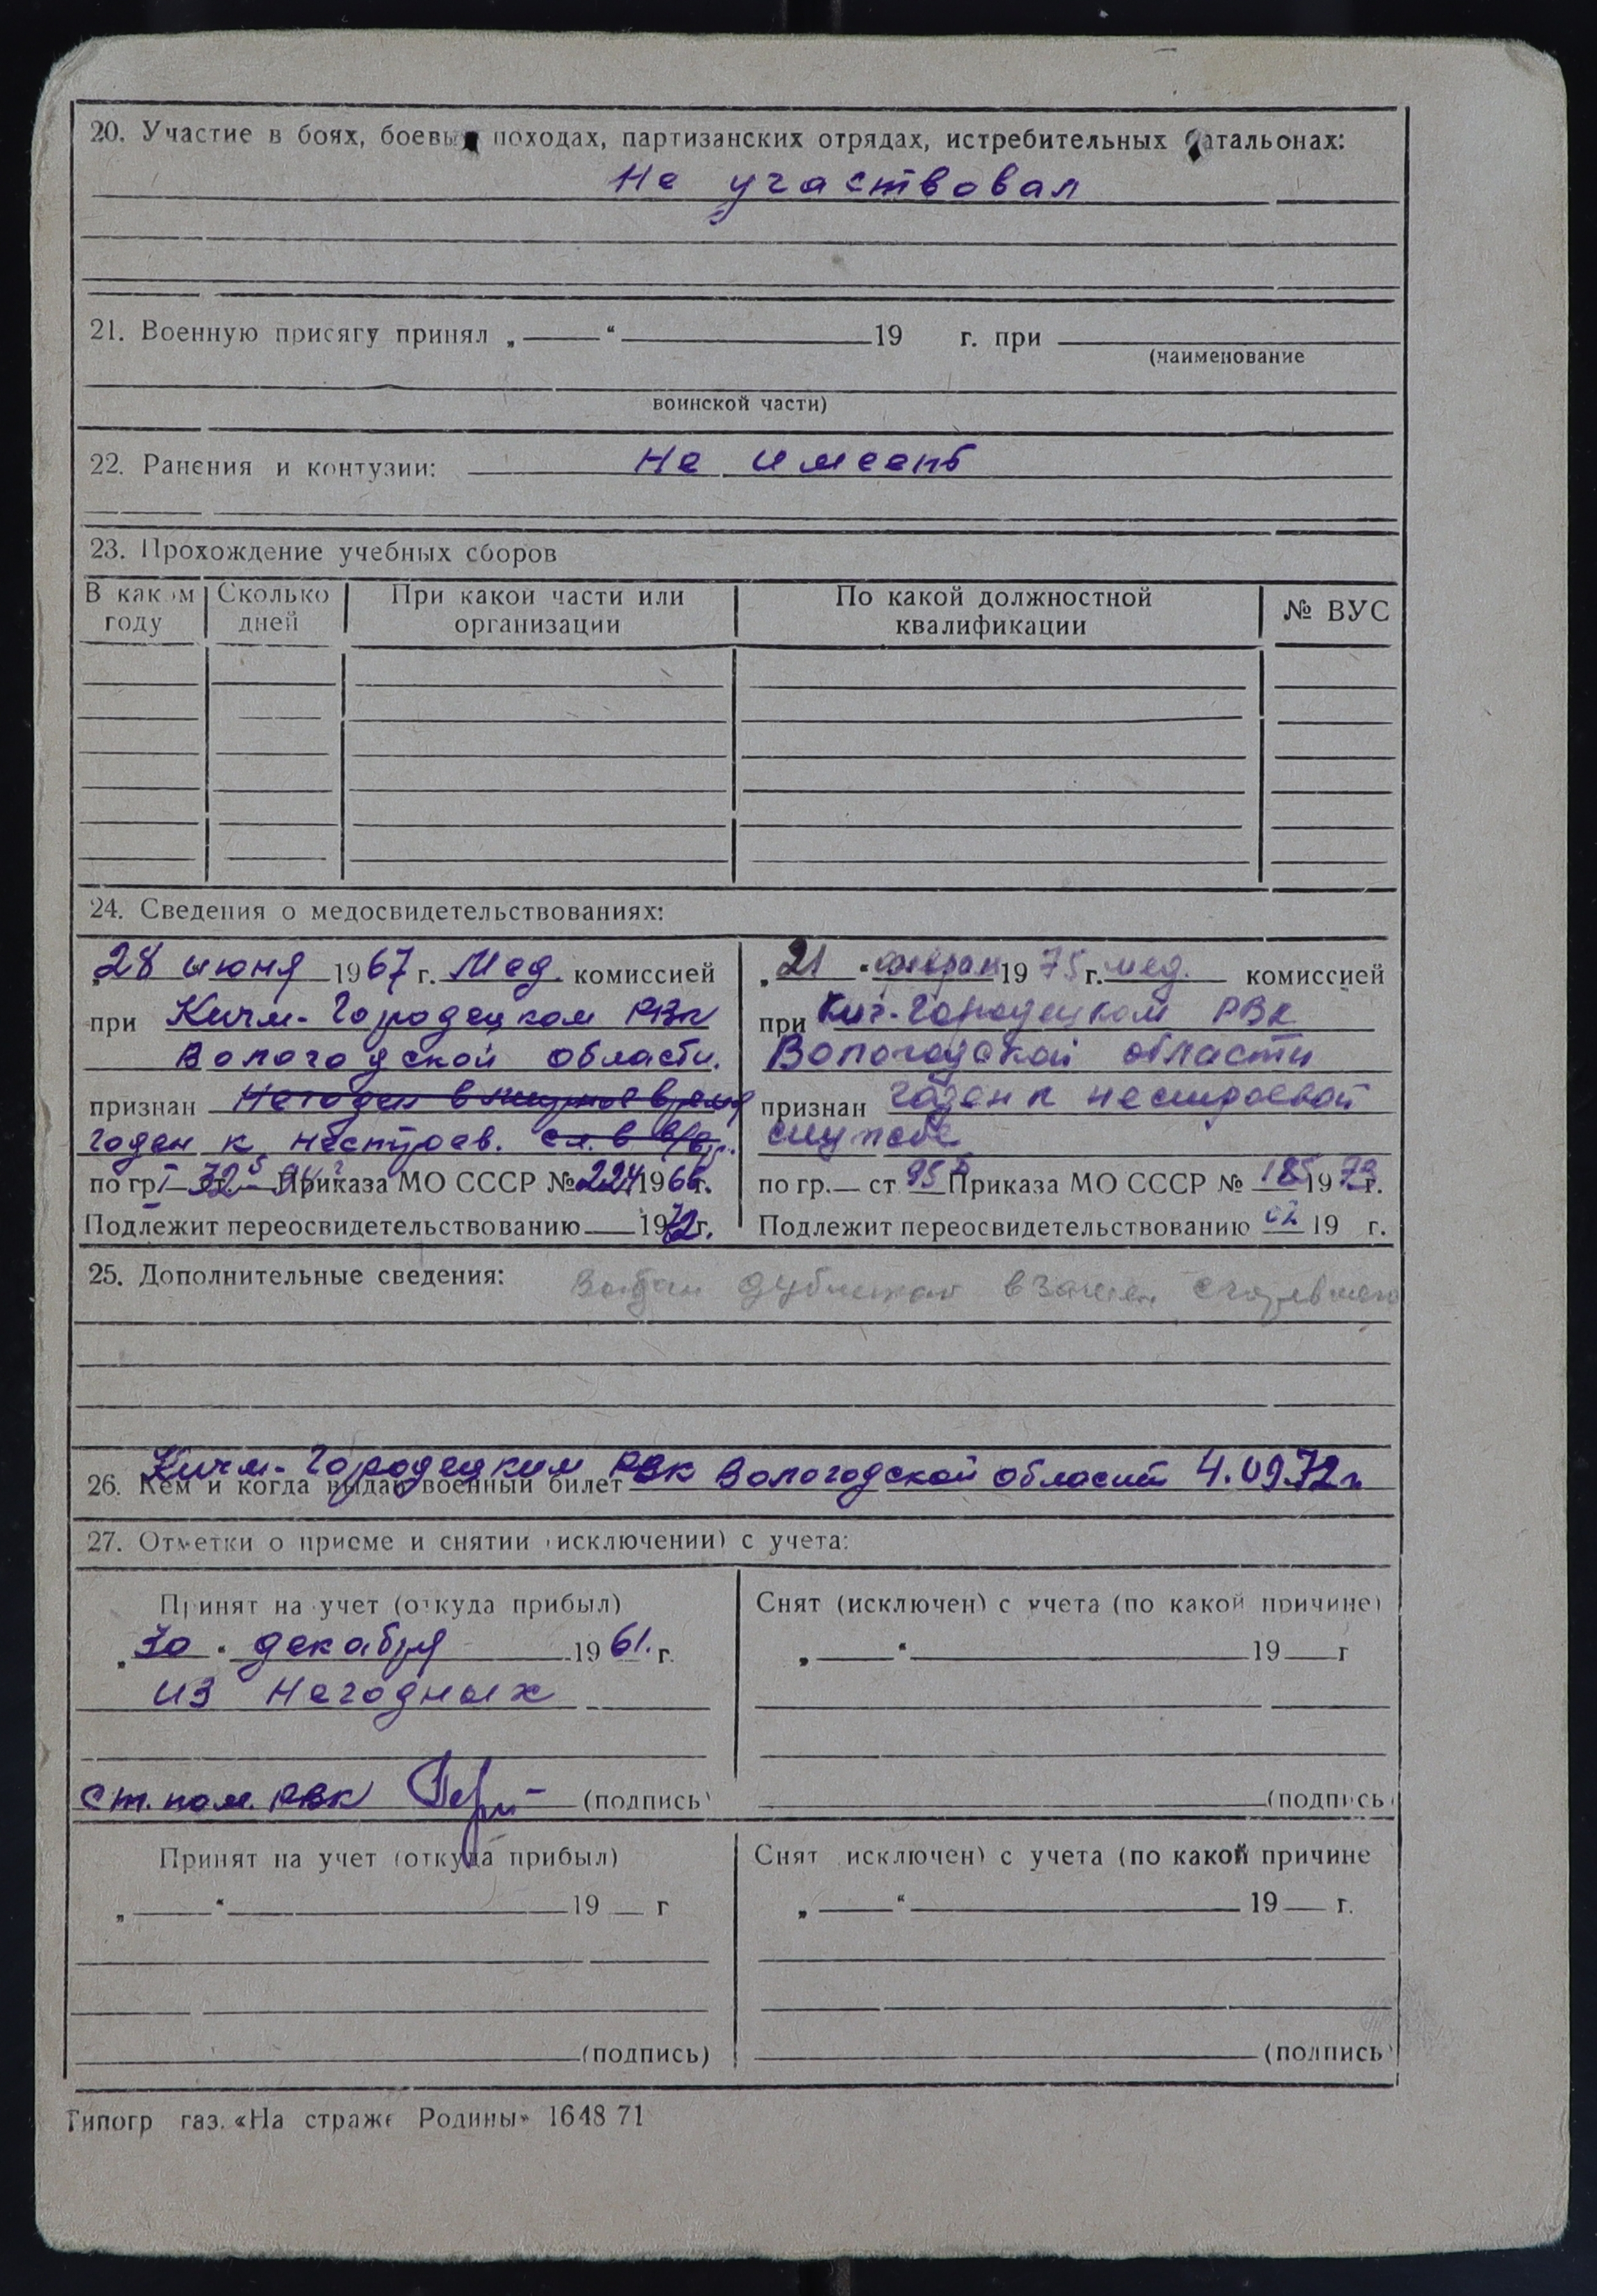 20. Участие в боях, боевых походах, партизанских отрядах, истребительных батальонах:
Не участвовал
21. Военную присягу принял „ “ 19 г. при
(наименование
воинской части)
22. Ранения и контузии: Не имеет
23. Прохождение учебных сборов
В каком году Сколько дней При какой части или организации По какой должностной квалификации № ВУС
24. Сведения о медосвидетельствованиях:
„28 июня 1967 г. Мед. комиссией
при Кичм-Городецком РВК
Вологодской области.
признан Негоден в мирное время
годен к нестроев. сл. в в/вр.
по гр. I ст. Приказа МО СССР № 224 1966 г.
Подлежит переосвидетельствованию 1972 г.
„21 “ феврал 1975 г. мед. комиссией
при Кич-Городецком РВК
Вологодской области
признан годен к нестроевой
службе
по гр. — ст 95б Приказа МО СССР № 185 1973 г.
Подлежит переосвидетельствованию 19 г.
25. Дополнительные сведения: дубликат взамен
26. Кем и когда выдан военный билет Кичм-Городецким РВК Вологодской области 4.09.72г
27. Отметки о приеме и снятии (исключении) с учета:
Принят на учет (откуда прибыл)
„30 “ декабря 1961. г.
из негодных
ст. пом. РВК (подпись)
Снят (исключен) с учета (по какой причине)
„ “ 19 г
(подпись)
Принят на учет (откуда прибыл)
„ “ 19 г
(подпись)
Снят исключен) с учета (по какой причине
„ “ 19 г.
(подпись)
Типогр газ. «На страже Родины» 1648 71